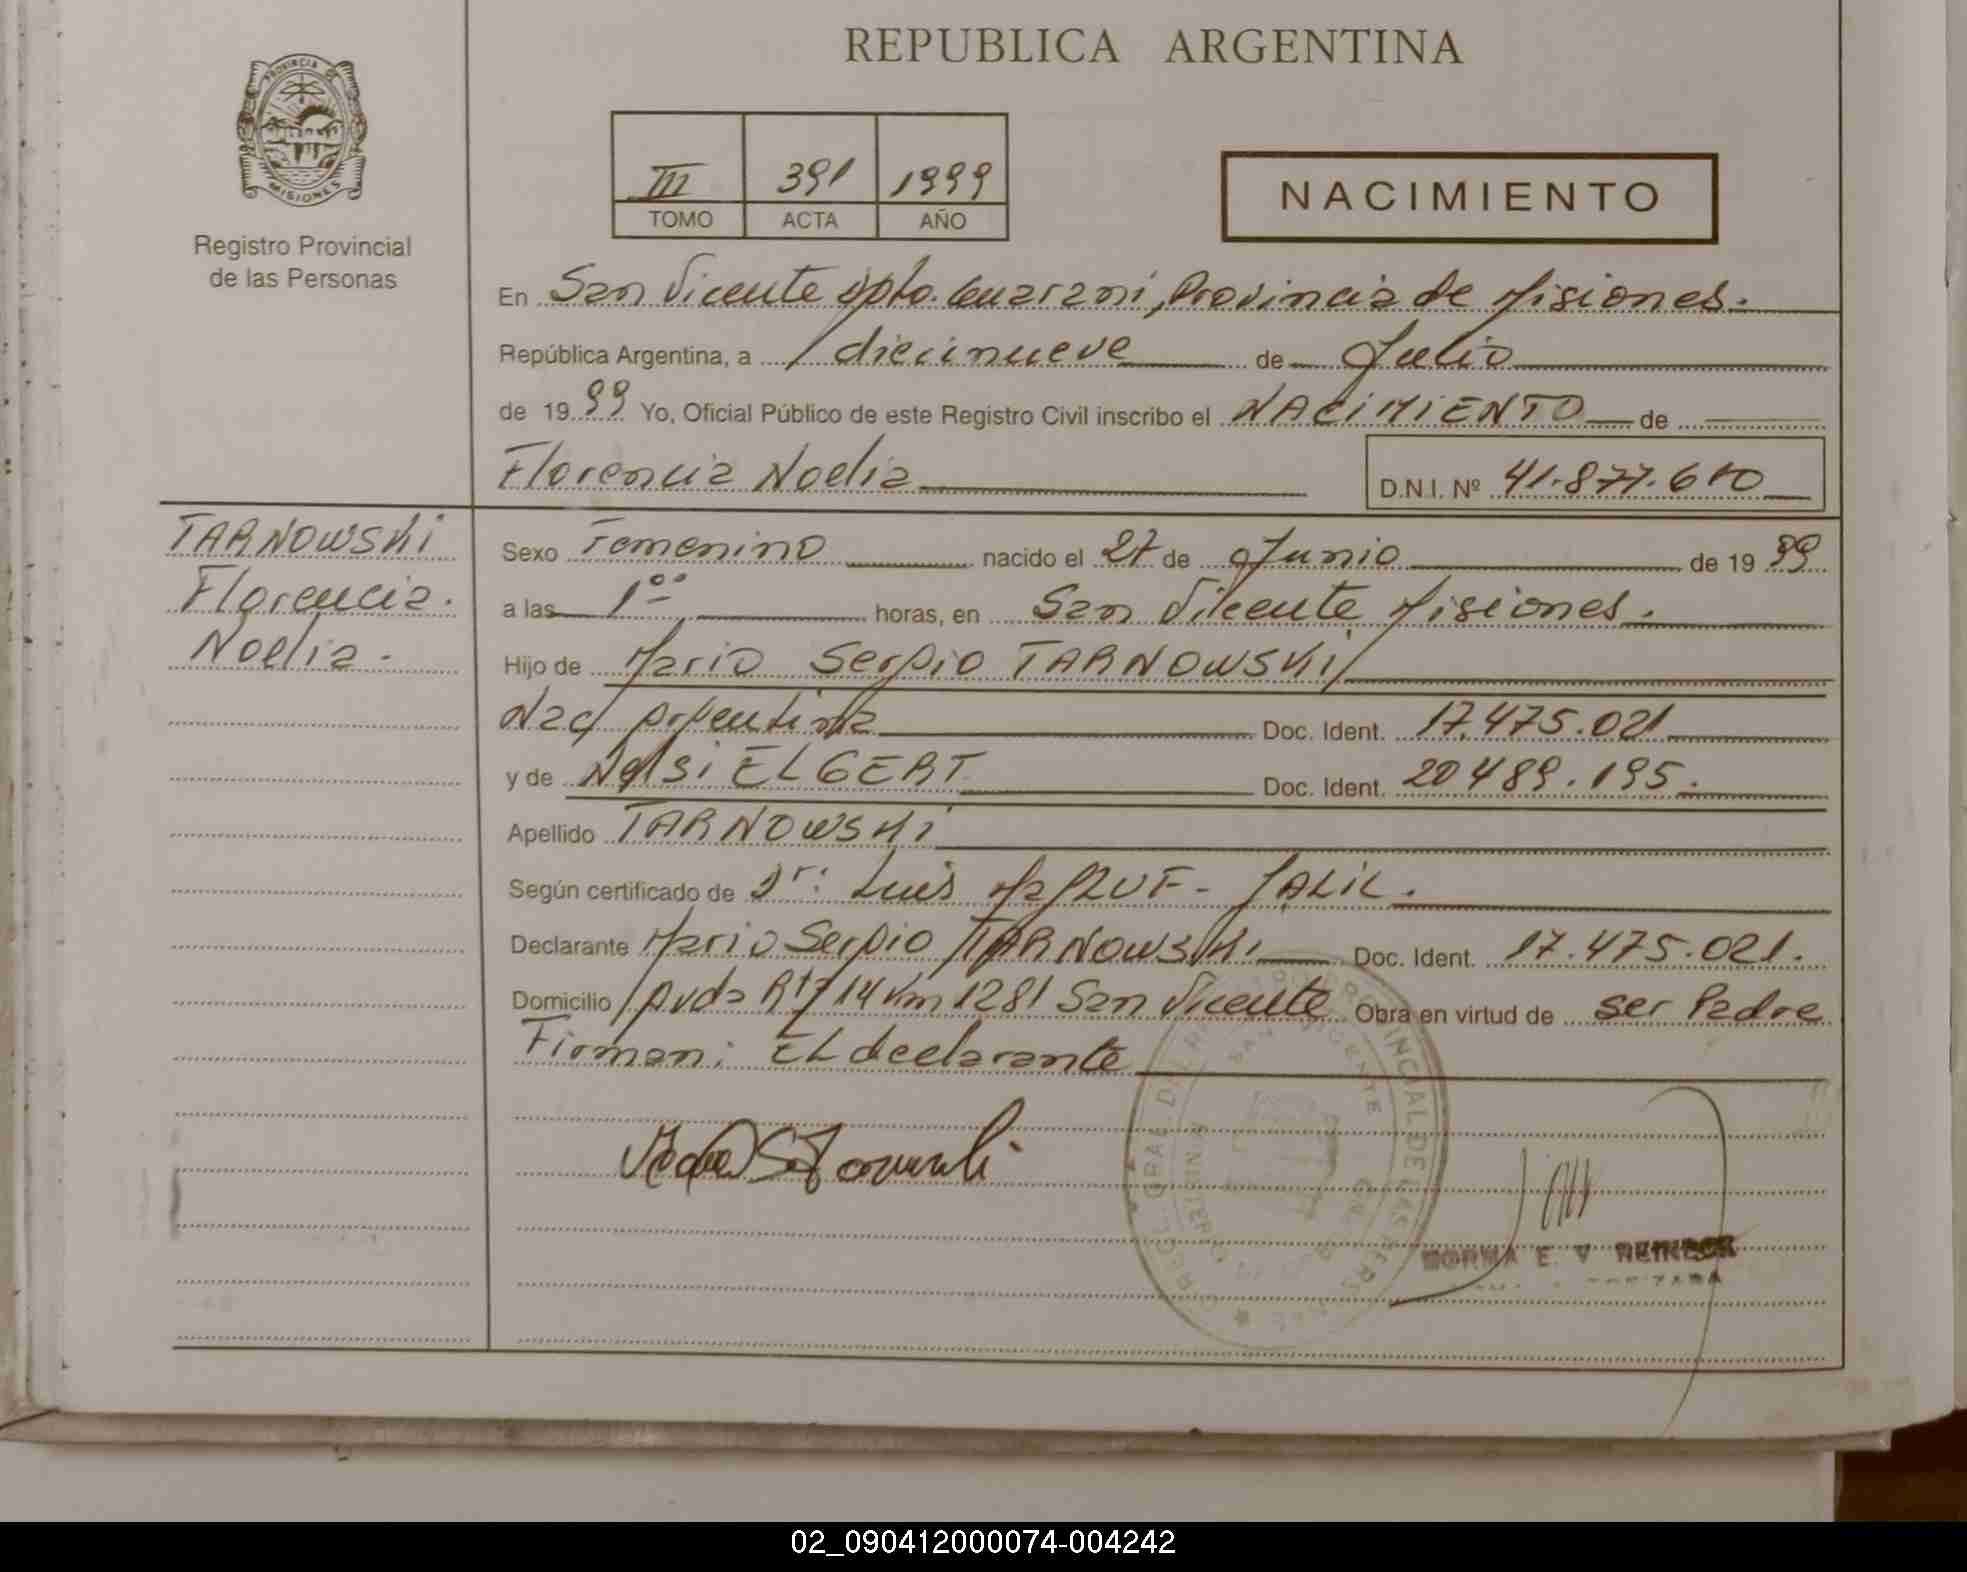 REPUBLICA ARGENTINA
PROVINCIA DE
MISIONES
Registro Provincial
de las Personas
III 391 1999
TOMO ACTA AÑO
NACIMIENTO
En San Vicente Dpto. Guarani, Provincia de Misiones.
República Argentina, a diecinueve de Julio
de 1999 Yo, Oficial Público de este Registro Civil inscribo el NACIMIENTO de
Florencia Noelia
D.N.I. Nº 41.877.610
TARNOWSKI
Florencia.
Noelia.
Sexo Femenino nacido el 27 de Junio de 1999
a las 1ºº horas, en San Vicente Misiones.
Hijo de Mario Sergio TARNOWSKI
Nac Argentina Doc. Ident. 17.475.021
y de Nelsi ELGERT Doc. Ident. 20489.195.
Apellido TARNOWSKI
Según certificado de Dr: Luis JALIL.
Declarante Mario Sergio TARNOWSKI Doc. Ident. 17.475.021.
Domicilio Avda 14 Km 1281 San Vicente Obra en virtud de ser Padre
Firman: El declarante
NORMA E. V.
02_090412000074-004242